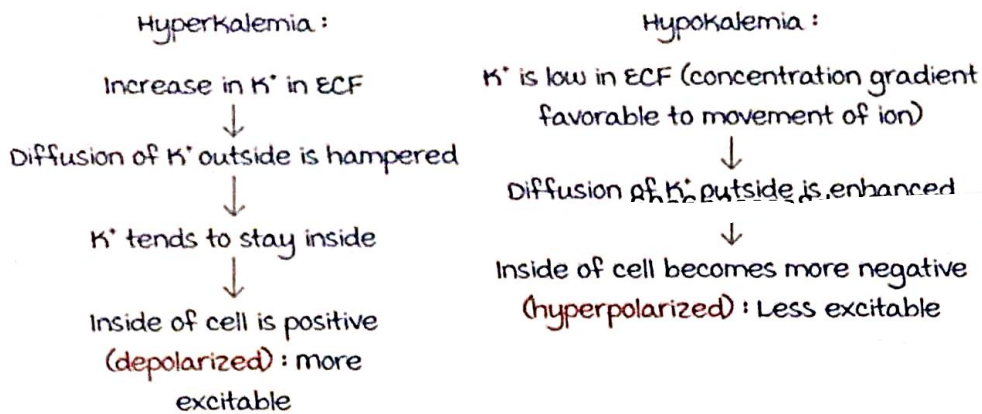 Hyperkalemia :
Increase in K⁺ in ECF
↓
Diffusion of K⁺ outside is hampered
↓
K⁺ tends to stay inside
↓
Inside of cell is positive
(depolarized) : more
excitable
Hypokalemia :
K⁺ is low in ECF (concentration gradient
favorable to movement of ion)
↓
Diffusion of K⁺ outside is enhanced
↓
Inside of cell becomes more negative
(hyperpolarized) : Less excitable